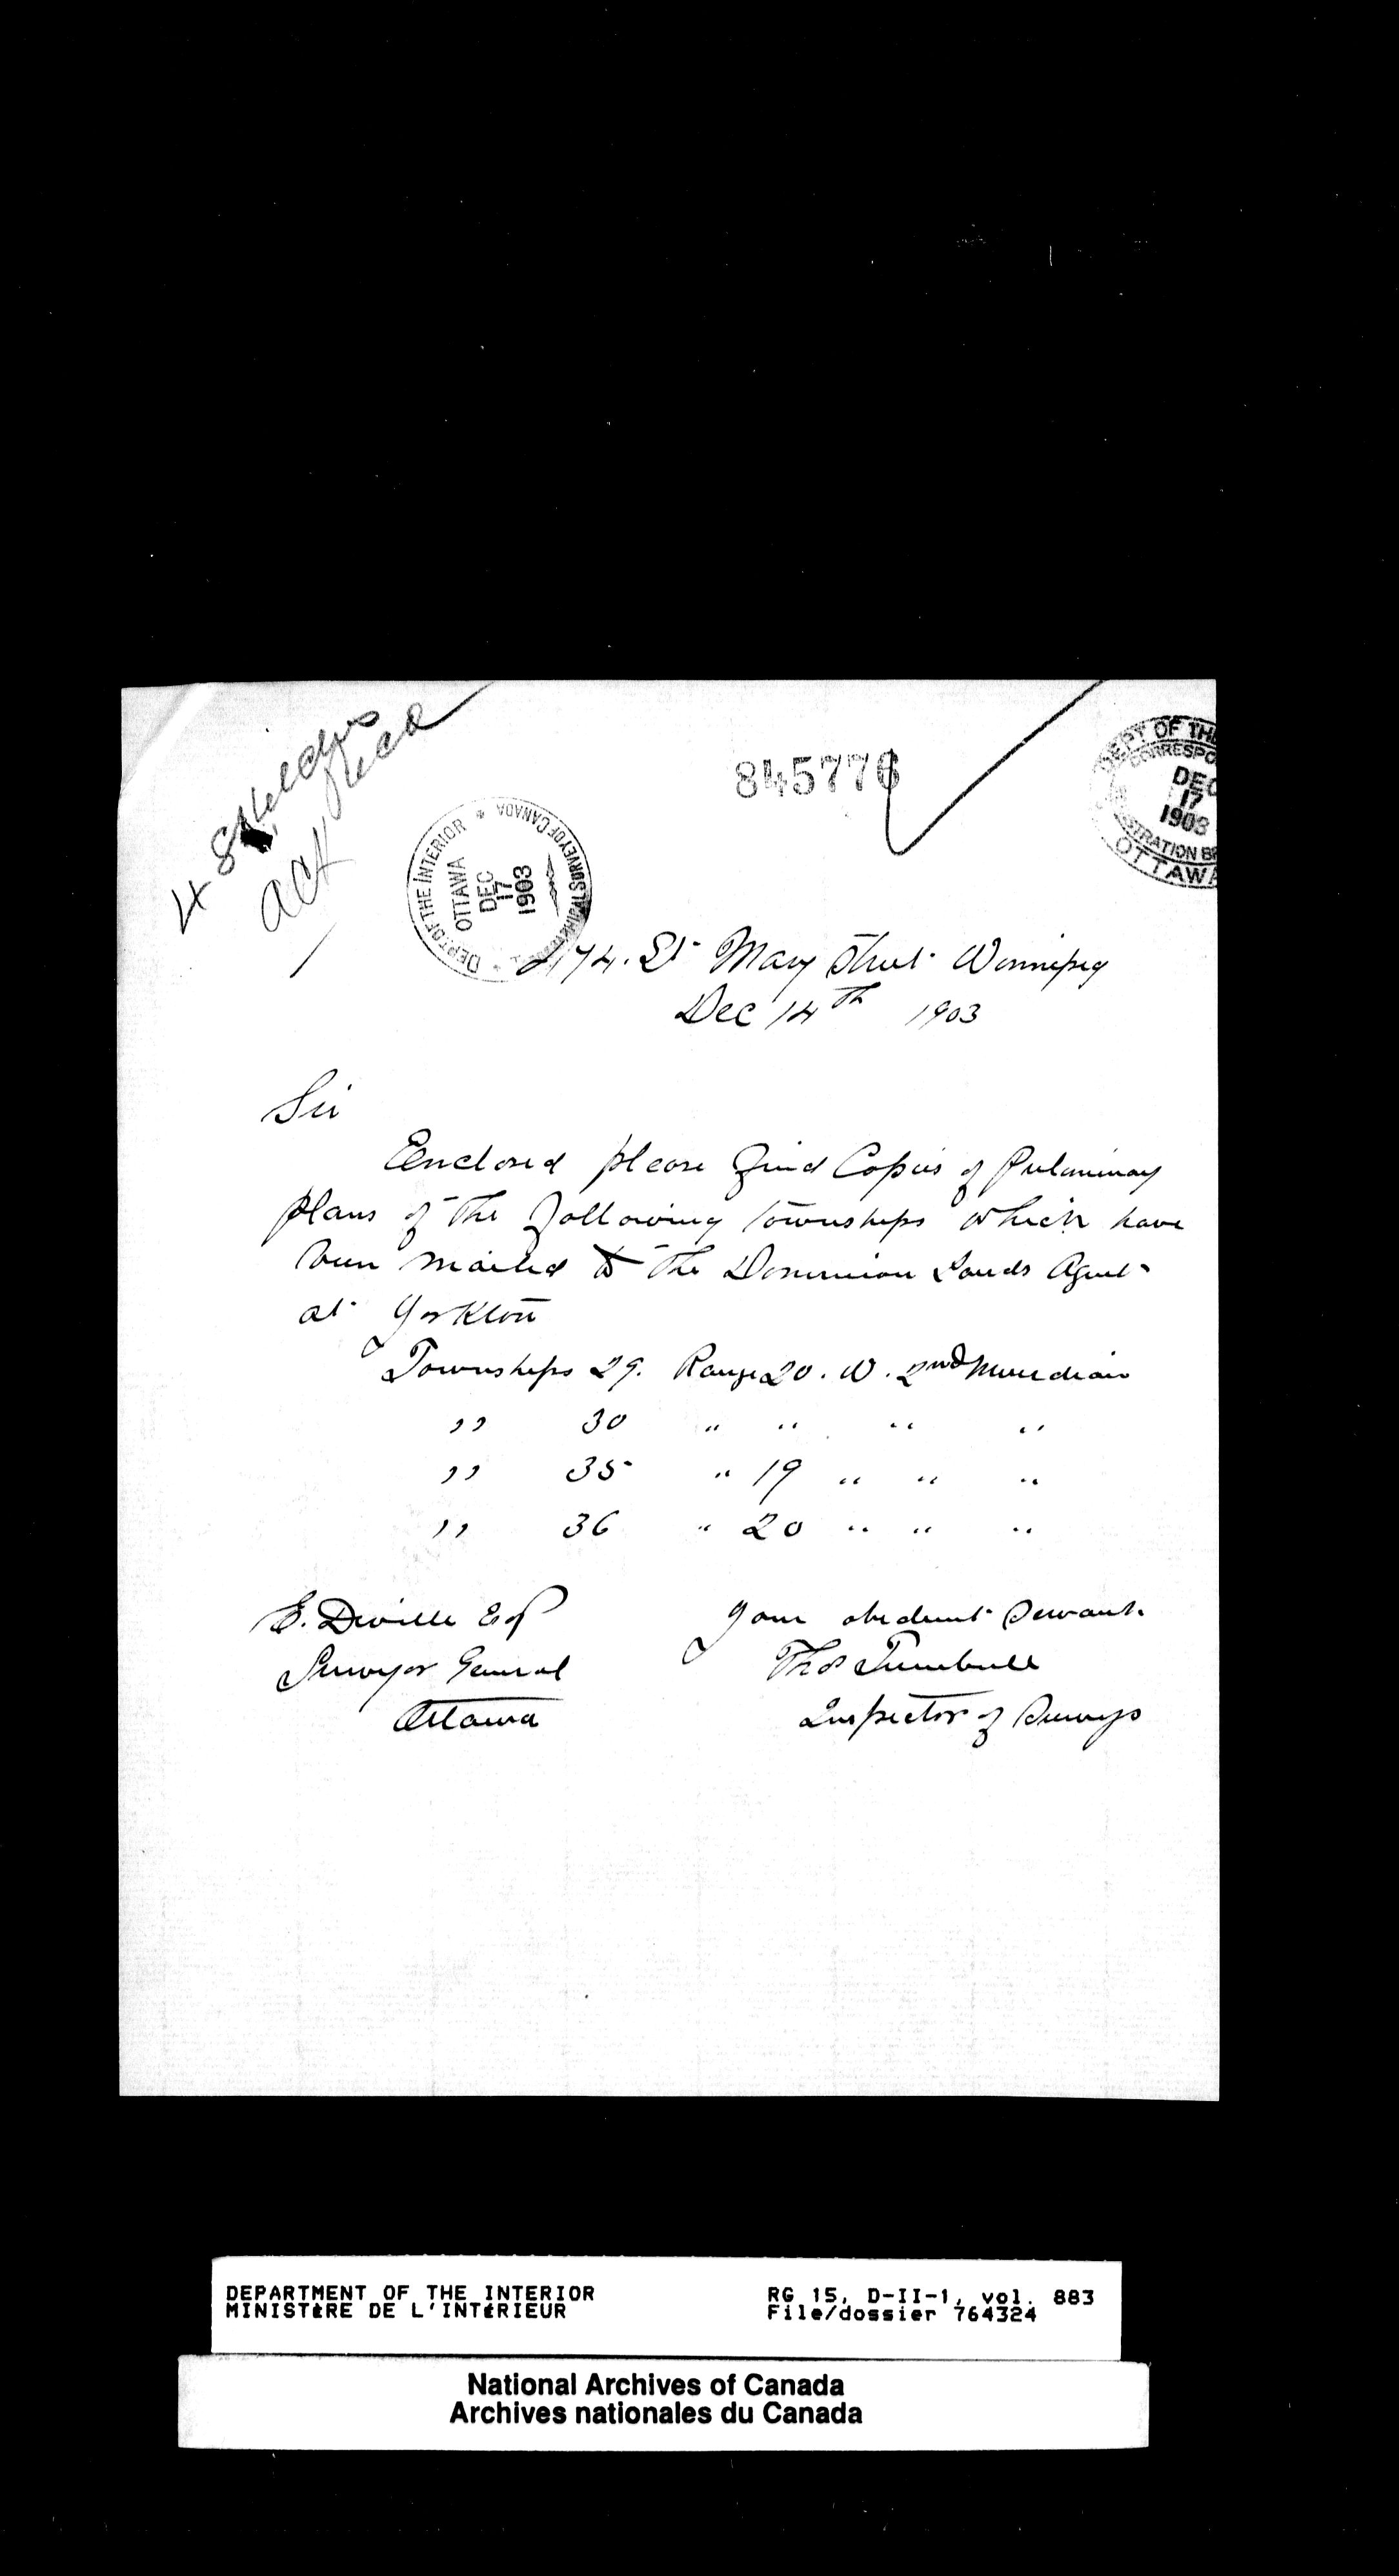 4 Sketches
ack Recd
845776
DEPT OF THE
CORRESPO
DEC
17
1903
STRATION BR
OTTAWA
DEPT OF THE INTERIOR * SURVEY OF CANADA
OTTAWA
DEC
17
1903
174. St Mary Street Winnipeg
Dec 14th 1903
Sir
Enclosed please find Copies of Preliminary
plans of the following townships which have
been mailed to the Dominion Lands Agent
at Yorkton
Townships 29. Range 20. W. 2nd Meridian
,, 30 " " " "
,, 35 " 19 " " "
,, 36 " 20 " " "
E. Deville Esq
Surveyor General
Ottawa
Your obedient Servant
Thos Turnbull
Inspector of Surveys
DEPARTMENT OF THE INTERIOR
MINISTÈRE DE L'INTÉRIEUR
RG 15, D-II-1, vol. 883
File/dossier 764324
National Archives of Canada
Archives nationales du Canada